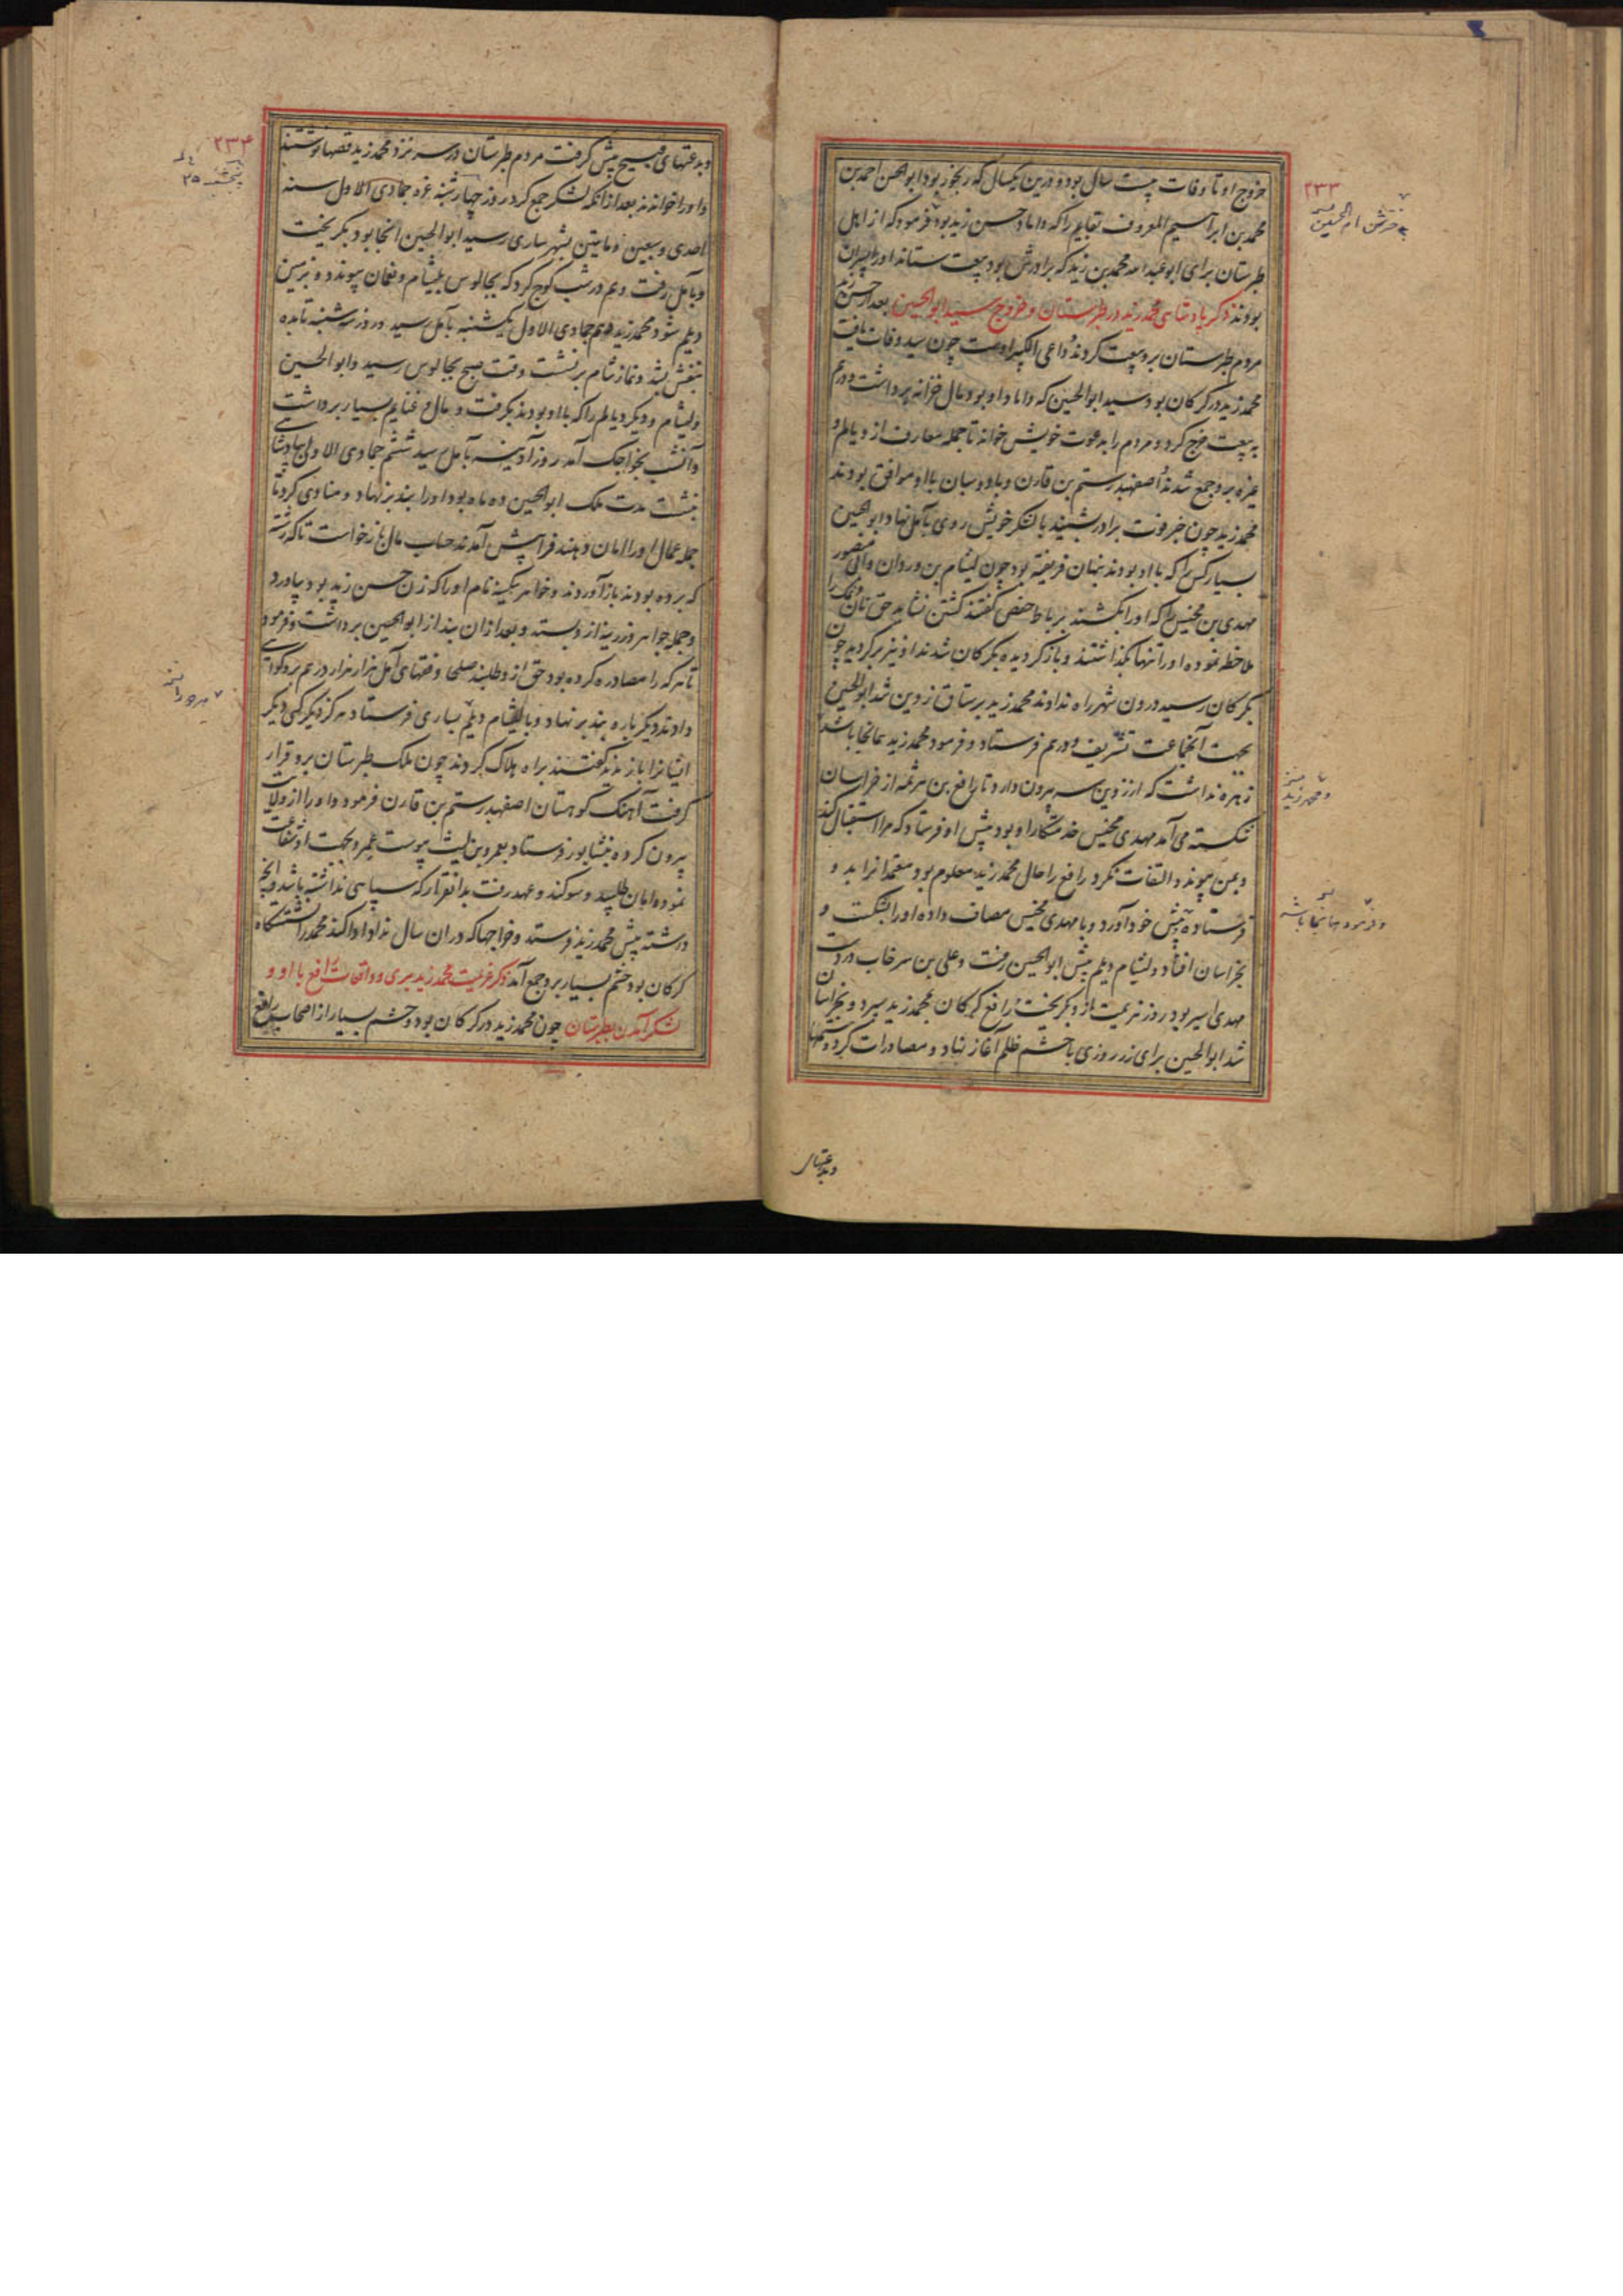 ۲۳۳
خروج او تا وفات بیست سال بود و درین یکسال که رنجور بود ابوالحسن احمد بن
محمد بن ابراهیم المعروف بقایم را که داماد حسن زید بود فرمود که از اهل
طبرستان برای ابو عبدالله محمد بن زید که برادرش بود بیعت ستاند او را پسران
بودند ذکر پادشاهی محمد زید در طبرستان و خروج سید ابوالحسین بعد از حسن زید
مردم طبرستان برو بیعت کردند و داعی الکبیر اوست چون سید وفات یافت
محمد زید در کرکان بود سید ابوالحسین که داماد او بود مال خزانه برداشت و درم
به بیعت خرج کرد و مردم را بدعوت خویش خواند تا جمله معارف از دیالم و
غیره برو جمع شدند اصفهبد رستم بن قارن و بادوسبان با او موافق بودند
محمد زید چون خبر فوت برادر بشنید با لشکر خویش روی بآمل نهاد ابوالحسین
بسیار کس را که با او بودند پنهان فریفته بود چون لیشام بن وردان و ابی منصور
مهدی بن مخیس را که او را بکشند برباط حفص گفتند کشتن نشاید حق نان و نمک را
ملاحظه نموده او را تنها بگذاشتند و باز گردیده بکرکان شدند او نیز برگردید چون
بکرکان رسید درون شهر راه ندادند محمد زید برستاق زوین شد ابوالحسین
بجهت آنجماعت تشریف و درم فرستاد و فرمود محمد زید همانجا باشد
زهره نداشت که از زوین سر بیرون دارد تا رافع بن هرثمه از خراسان
شکسته می آمد مهدی مخیس خدمتکار او بود پیش او فرستاد که مرا استقبال کند
و بمن پیوند والتفات نکرد رافع را حال محمد زید معلوم بود معتمدانرا بدو
فرستاده پیش خود آورد و با مهدی مخیس مصاف داده او را بشکست و
بخراسان افتاد و لیشام دیلم پیش ابوالحسین رفت و علی بن سرخاب در دست
مهدی اسیر بود روز هزیمت ازو بگریخت رافع کرکان بمحمد زید سپرد و بخراسان
شد ابوالحسین برای زر روزی با حشم ظلم آغاز نهاد و مصادرات کرد و ستمها
و محمد زید
و بدعتهای
۲۳۴
و بدعتهای قبیح پیش گرفت مردم طبرستان در سر نزد محمد زید قصها نوشتند
و او را خواندند بعد از آنکه لشکر جمع کرد روز چهارشنبه غره جمادی الاول سنه
احدی و سبعین و مایتین بشهر ساری رسید ابوالحسین آنجا بود بگریخت
و بآمل رفت و هم در شب کوچ کرد که بچالوس بلیشام و نعمان پیوندد و بزمین
دیلم شود محمد زید دوم جمادی الاول یکشنبه بآمل رسید و روز سه شنبه تا بده
بنفش بشد و نماز شام برنشست وقت صبح بچالوس رسید و ابوالحسین
و لیشام و دیگر دیالم را که با او بودند بگرفت و مال و غنایم بسیار برداشت
و آنشب بخواجک آمد روز آدینه بآمل رسید ششم جمادی الاولی بپادشاهی
بنشست مدت ملک ابوالحسین ده ماه بود او را بند برنهاد و منادی کرد تا
جمله عمال او را امان دهند فرا پیش آمدند حساب مال باز خواست تا که رشته
که برده بودند باز آوردند و خواهر سکینه نام او را که زن حسن زید بود بیاورد
و جمله جواهر و زرینه ازو بستد و بعد از آن بند از ابوالحسین برداشت و فرمود
تا هر که را مصادره کرده بود حق ازو طلبند صلحا و فقهای آمل هزار هزار درم برو گواهی
دادند دیگر باره بند برنهاد و با لیشام دیلم بساری فرستاد هرگز دیگر کسی دیگر
ایشانرا باز ندید گفتند براه هلاک کردند چون ملک طبرستان برو قرار
گرفت آهنگ کوهستان اصفهبد رستم بن قارن فرمود و او را از ولایت
بیرون کرد و بنیشابور فرستاد بعمرو بن لیث پیوست عمرو بجهت او شفاعت
نموده امان طلبید و سوگند و عهد رفت بدانقرار که سپاهی نداشته باشد و آنچه
درشته پیش محمد زید فرستد و خراجها که در ان سال نداد ادا کند محمد را نشستگاه
کرکان بود حشم بسیار برو جمع آمد ذکر عزیمت محمد زید بری و واقعات رافع با او و
لشکر آمدن بطبرستان چون محمد زید در کرکان بود و حشم بسیار از اصحاب رافع